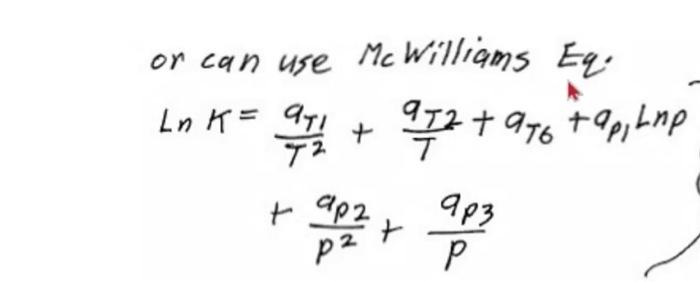 or can use McWilliams Eq.
Ln K = a_T1/T² + a_T2/T + a_T6 + a_p1 Ln p
+ a_p2/p² + a_p3/p